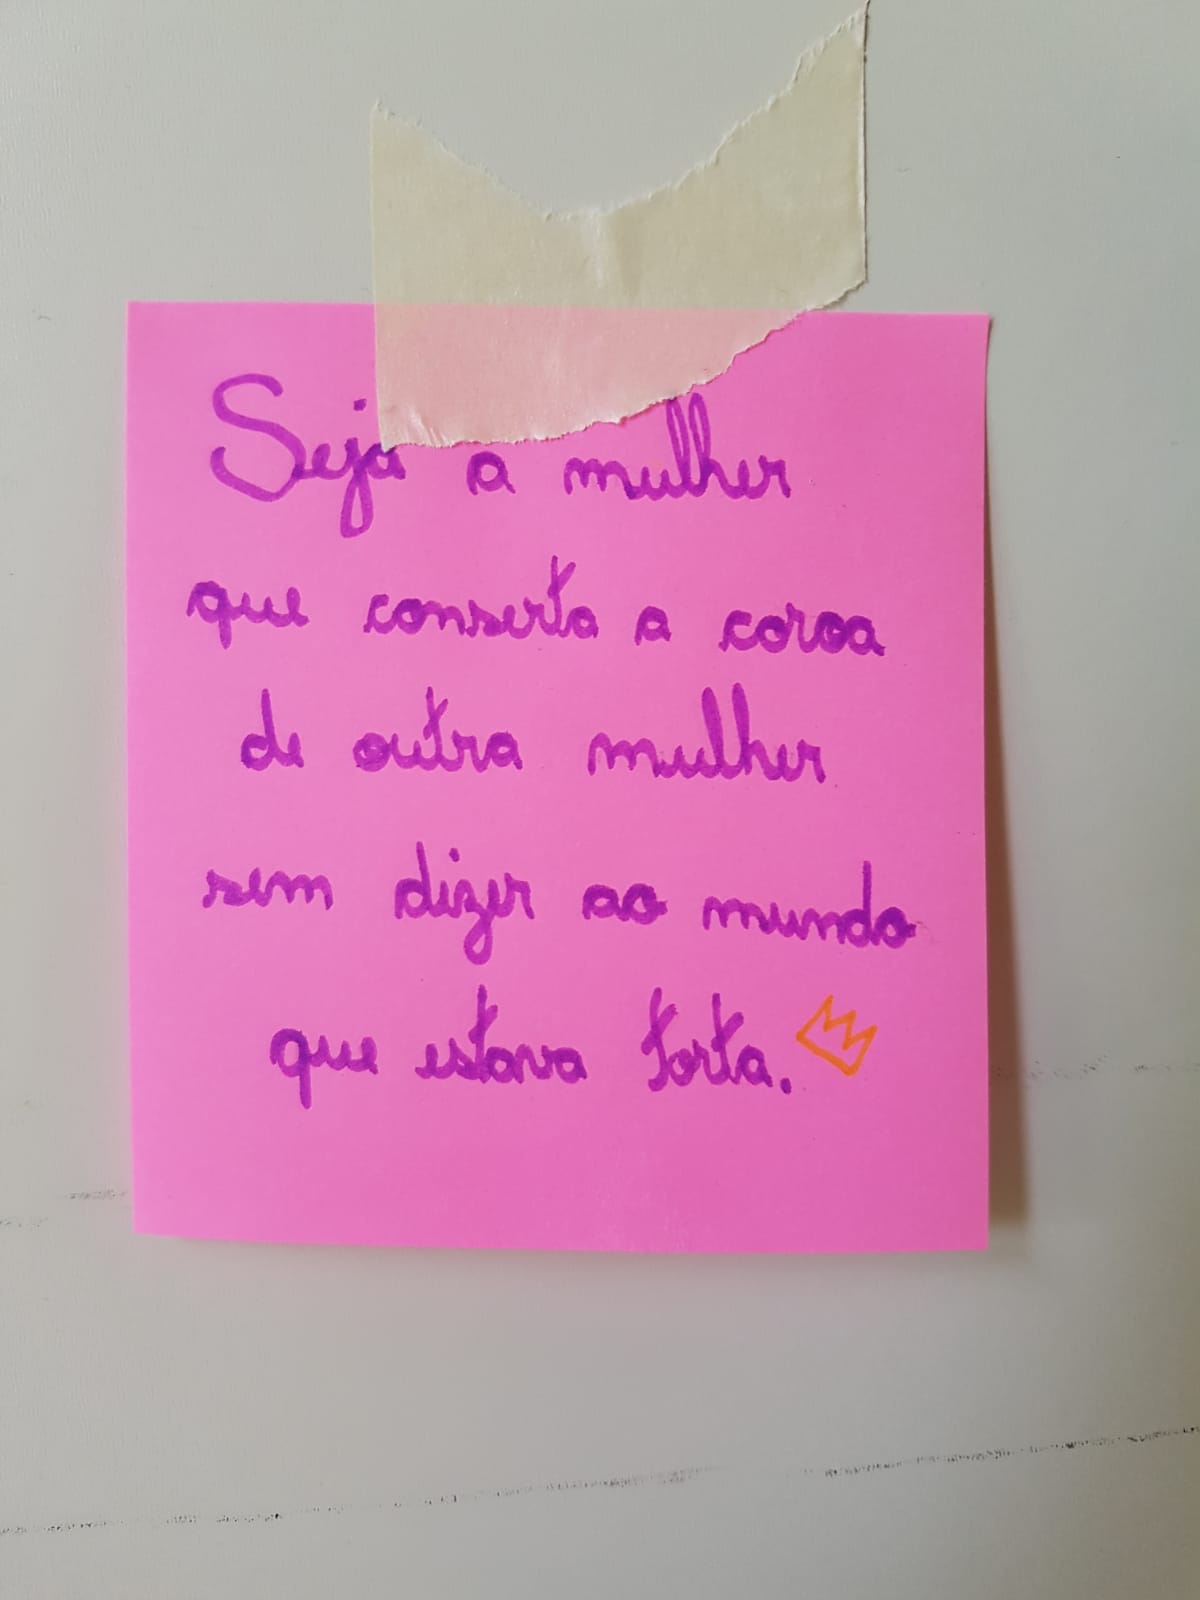 Seja a mulher
que conserta a coroa
de outra mulher
sem dizer ao mundo
que estava torta.